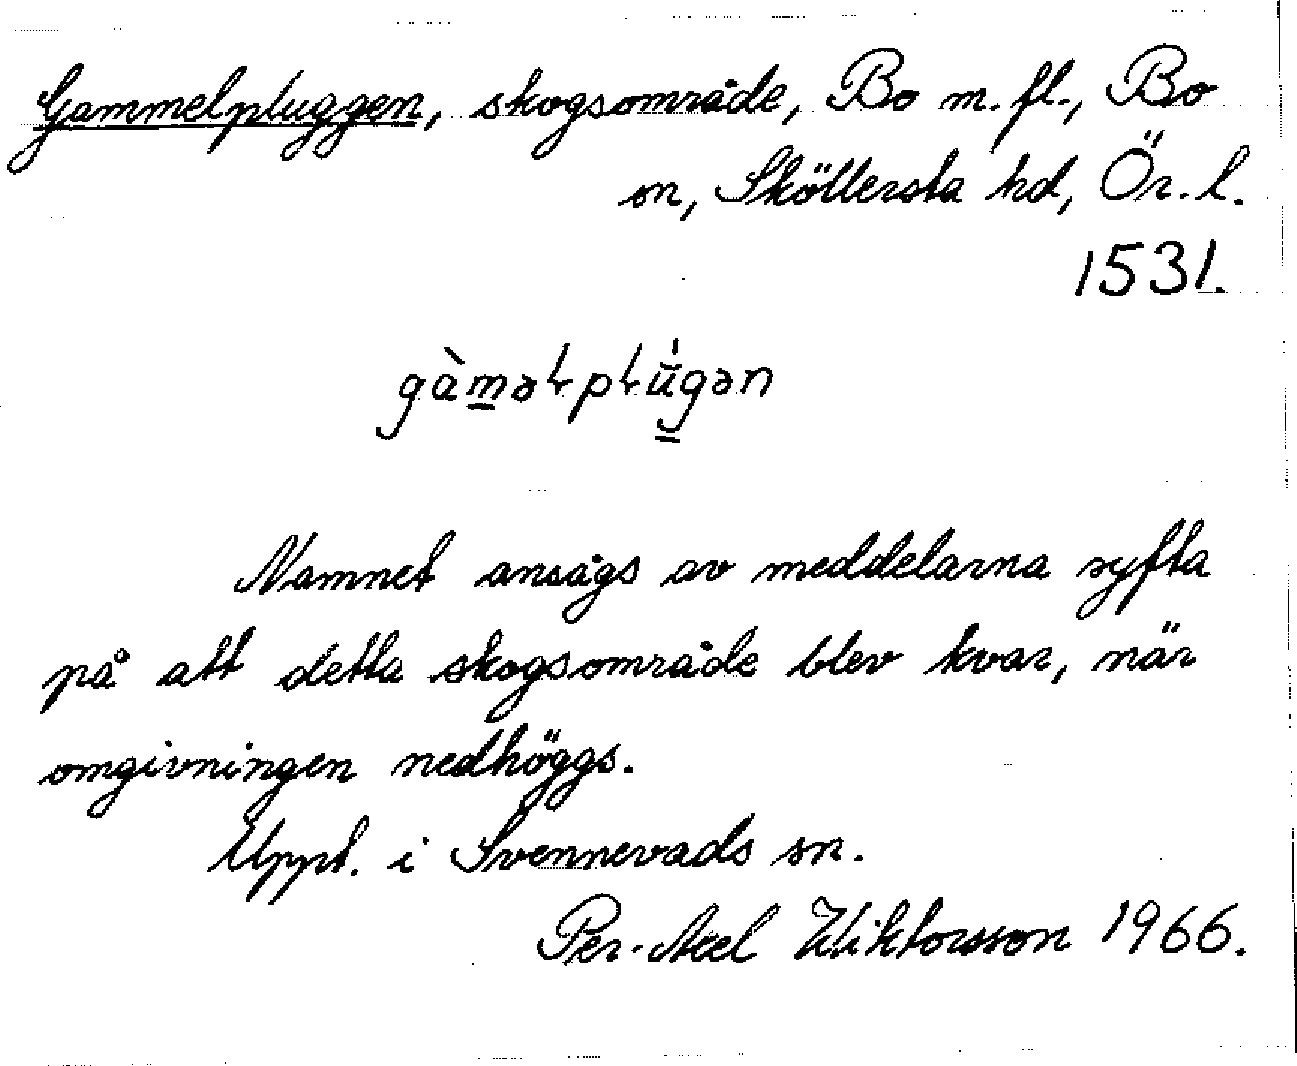 Gammelpluggen, skogsområde, Bo m.fl., Bo
sn, Sköllersta hd, Ör. l.
1531.
gàməłpłúgən
Namnet ansågs av meddelarna syfta
på att detta skogsområde blev kvar, när
omgivningen nedhöggs.
Uppt. i Svennevads sn.
Per-Axel Wiktorsson 1966.